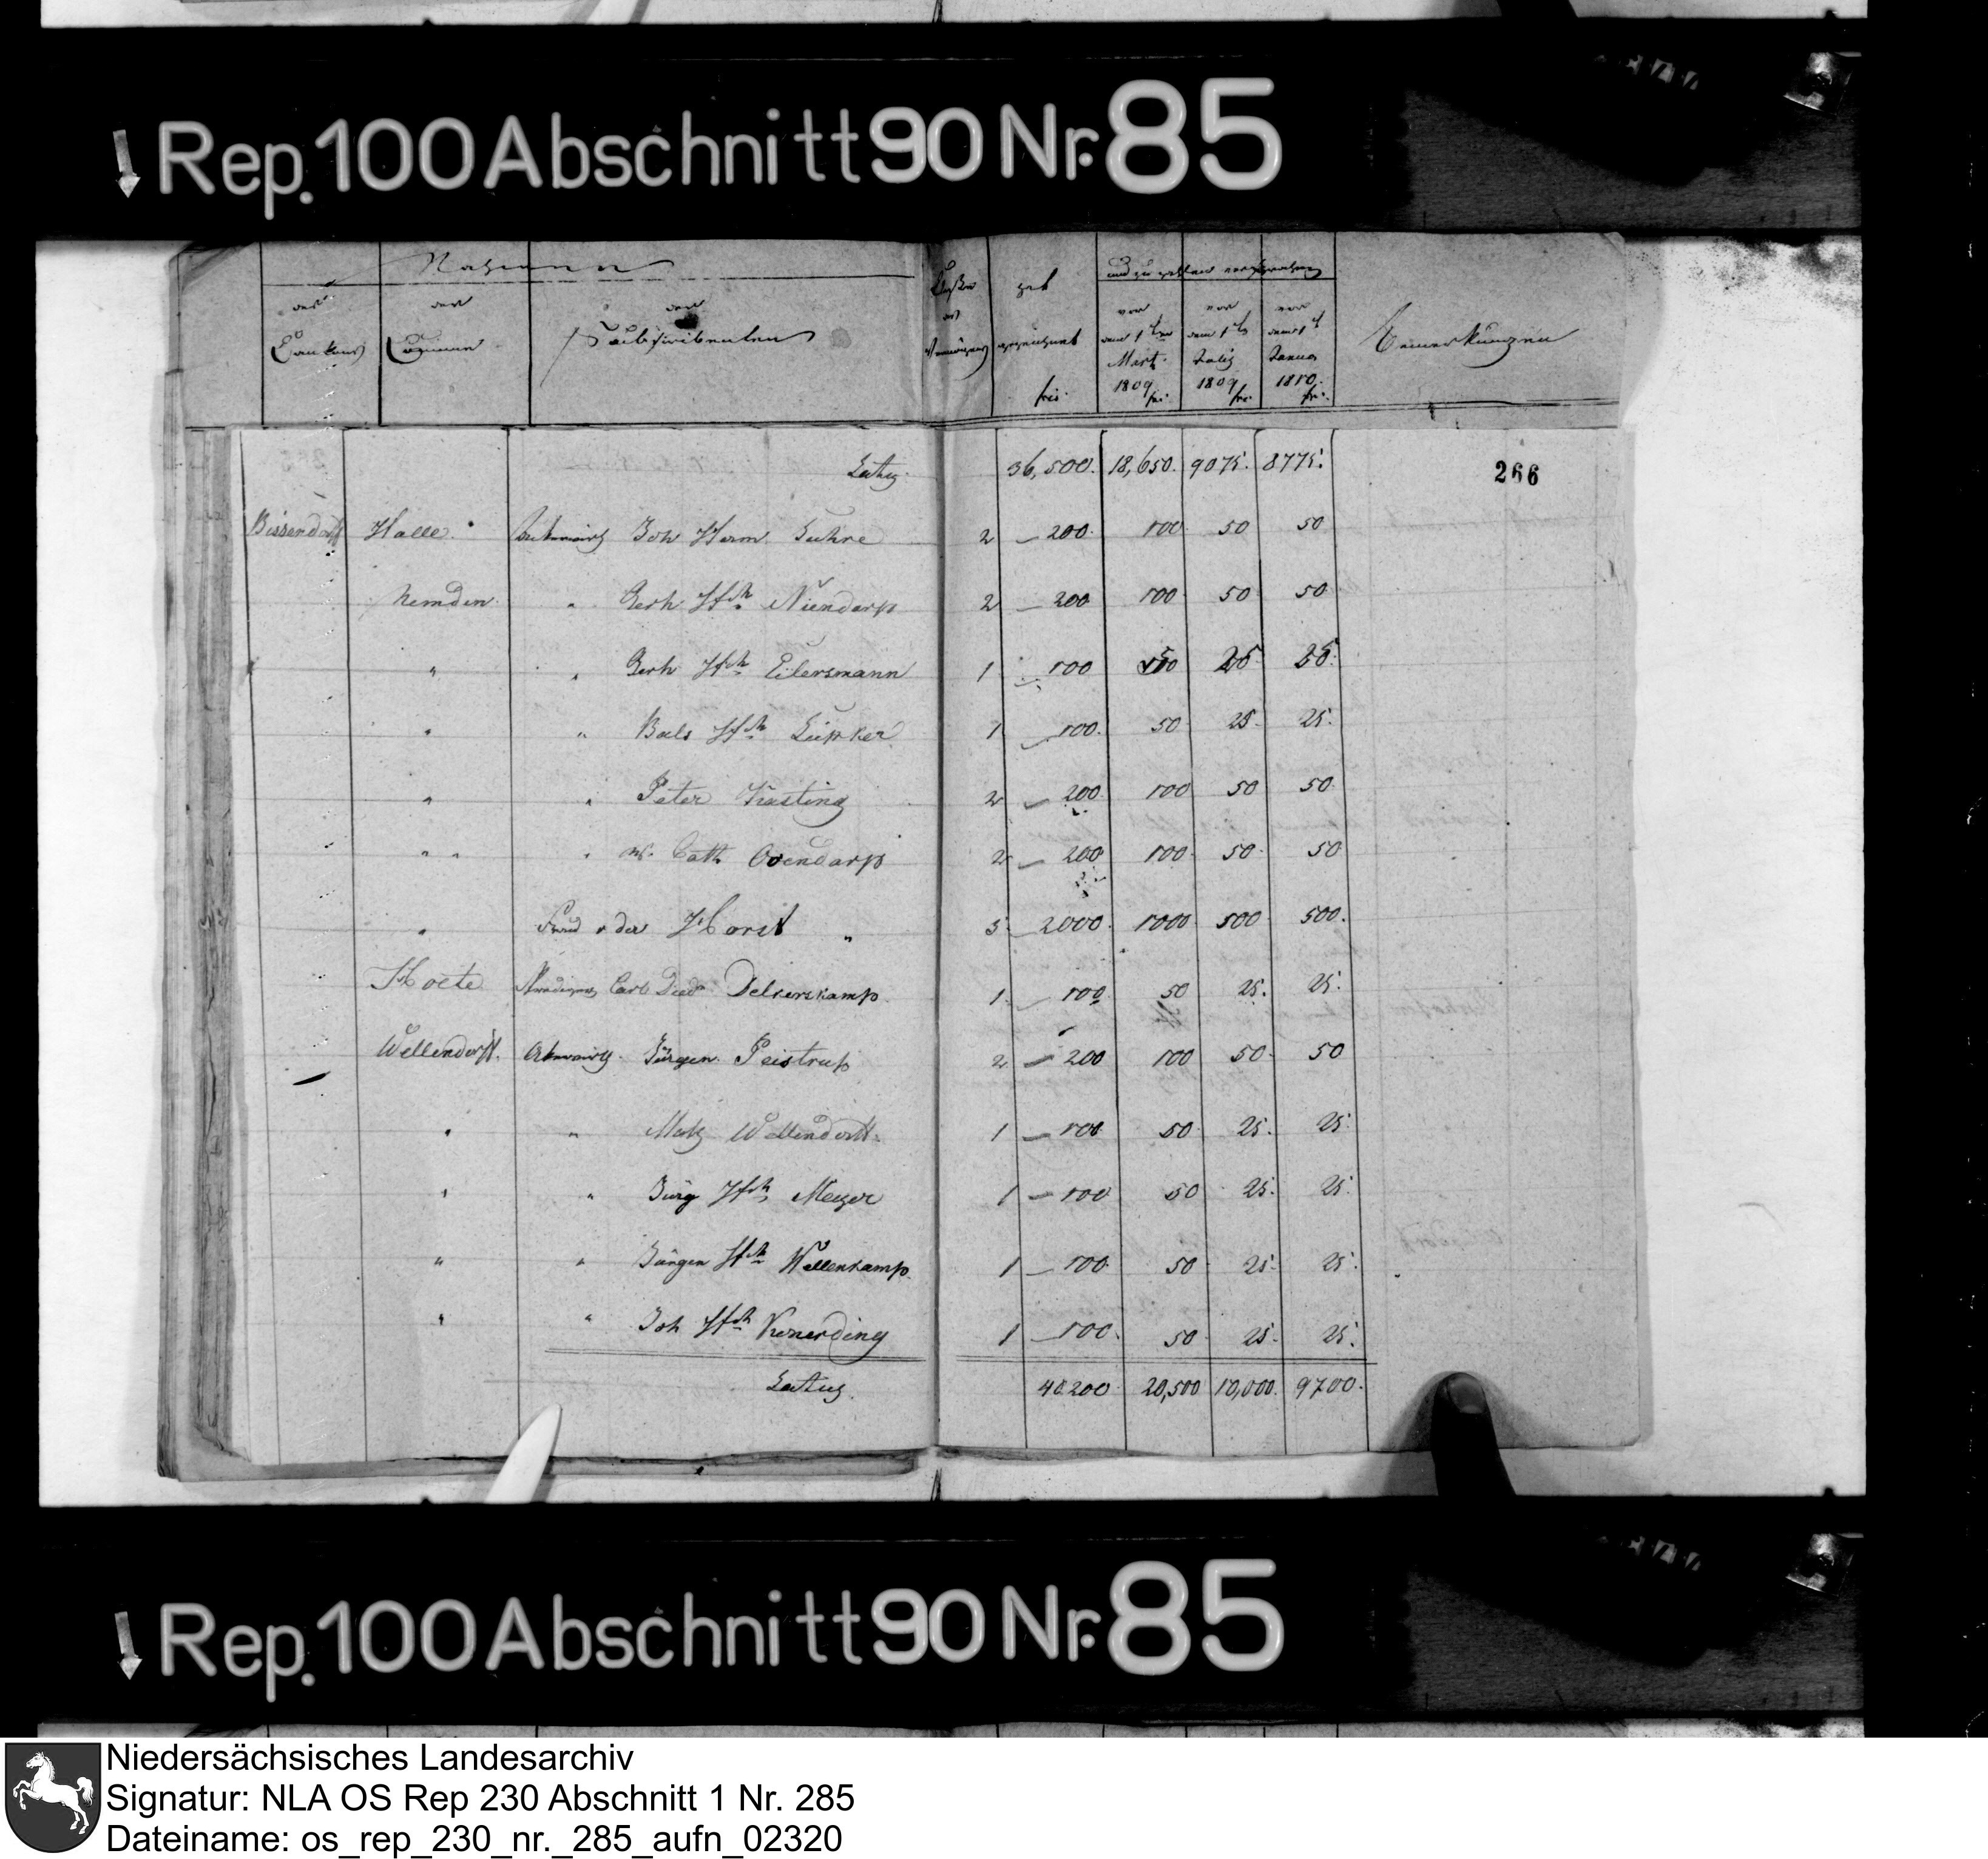 Rep. 100 Abschnitt 90 Nr. 85
Nahmen
des Cantons | der Commune | der Subscribenten | Classe des Vermögens | hat gezeichnet frcs. | und zu zahlen versprochen | Bemerkungen
vor dem 1ten Mart. 1809 frc. | vor dem 1ten July 1809 frc. | vor dem 1t Januar 1810. frc.
Latus 36,500. 18,650. 9075. 8775.
266
Bissendorf Halle. Joh Herm 2 200. 100 50 50
Nemden " Gerh Hch Niendarp 2 200 100 50 50
" " Gerh Hch Eilersmann 1 100 50 25 25.
" " Hch Lüpker 1 100. 50 25. 25.
" " Peter 2 200 100 50 50
" " " Cath 2 200 100 50 50
" v der Horst " 2000. 1000 500 500.
Carl Died Delkerskamp 1 100 50 25. 25.
Wellendorff. Jürgen Peistrup 2 200 100 50 50
" " Wellendorff. 1 100 50 25. 25.
" " Jürg Hch Meyer 1 100 50 25. 25.
" " Jürgen Hch Wellenkamp. 1 100 50 25. 25.
" " Joh Hch Konerding 1 100. 50 25. 25.
Latus. 40200 20,500 10,000. 9700.
Rep. 100 Abschnitt 90 Nr. 85
Niedersächsisches Landesarchiv
Signatur: NLA OS Rep 230 Abschnitt 1 Nr. 285
Dateiname: os_rep_230_nr._285_aufn_02320